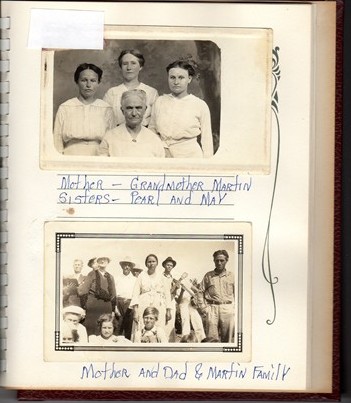 Mother - Grandmother Martin
Sisters - Pearl and May
Mother and Dad & Martin Family